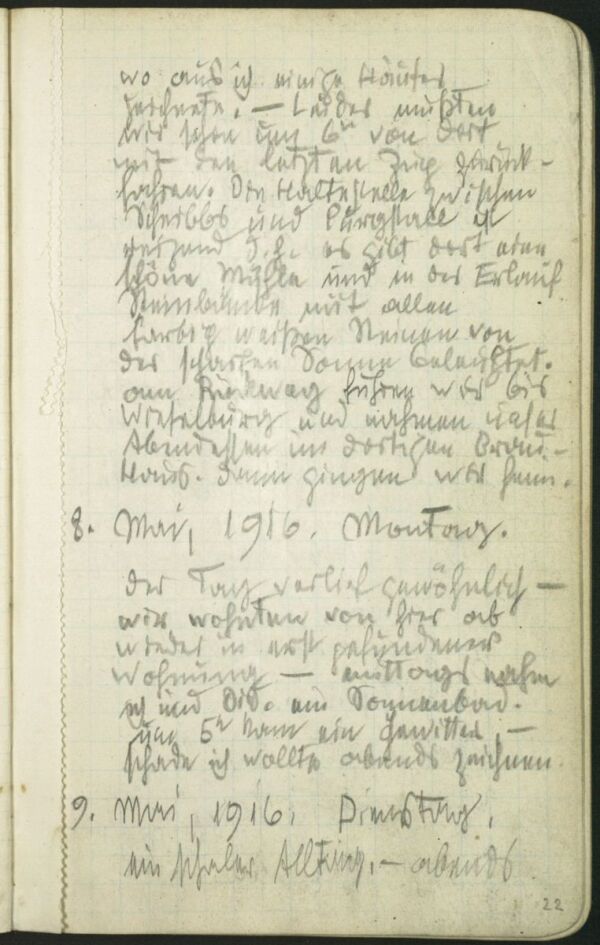 wo aus ich einige Häuser
zeichnete. — Leider mußten
wir schon um 6h von dort
mit den letzten Zug zurück-
fahren. Die Haltestelle zwischen
Scheibbs und Purgstall ist
reizend d.h. es gibt dort eine
schöne Mühle und in der Erlauf
Steinbänke mit allen
farbig weißen Steinen von
der scharfen Sonne beleuchtet.
am Rückweg fuhren wir bis
Wieselburg und nahmen unser
Abendessen im dortigen Brau-
Haus. dann gingen wir heim.
8. Mai, 1916. Montag.
der Tag verlief gewöhnlich —
wir wohnten von hier ab
wieder in erst gefundener
Wohnung — mittags nahm
ich und Did. ein Sonnenbad.
um 5h kam ein Gewitter, —
schade ich wollte abends zeichnen
9. Mai, 1916. Dienstag.
ein schaler Alltag. — abends
22